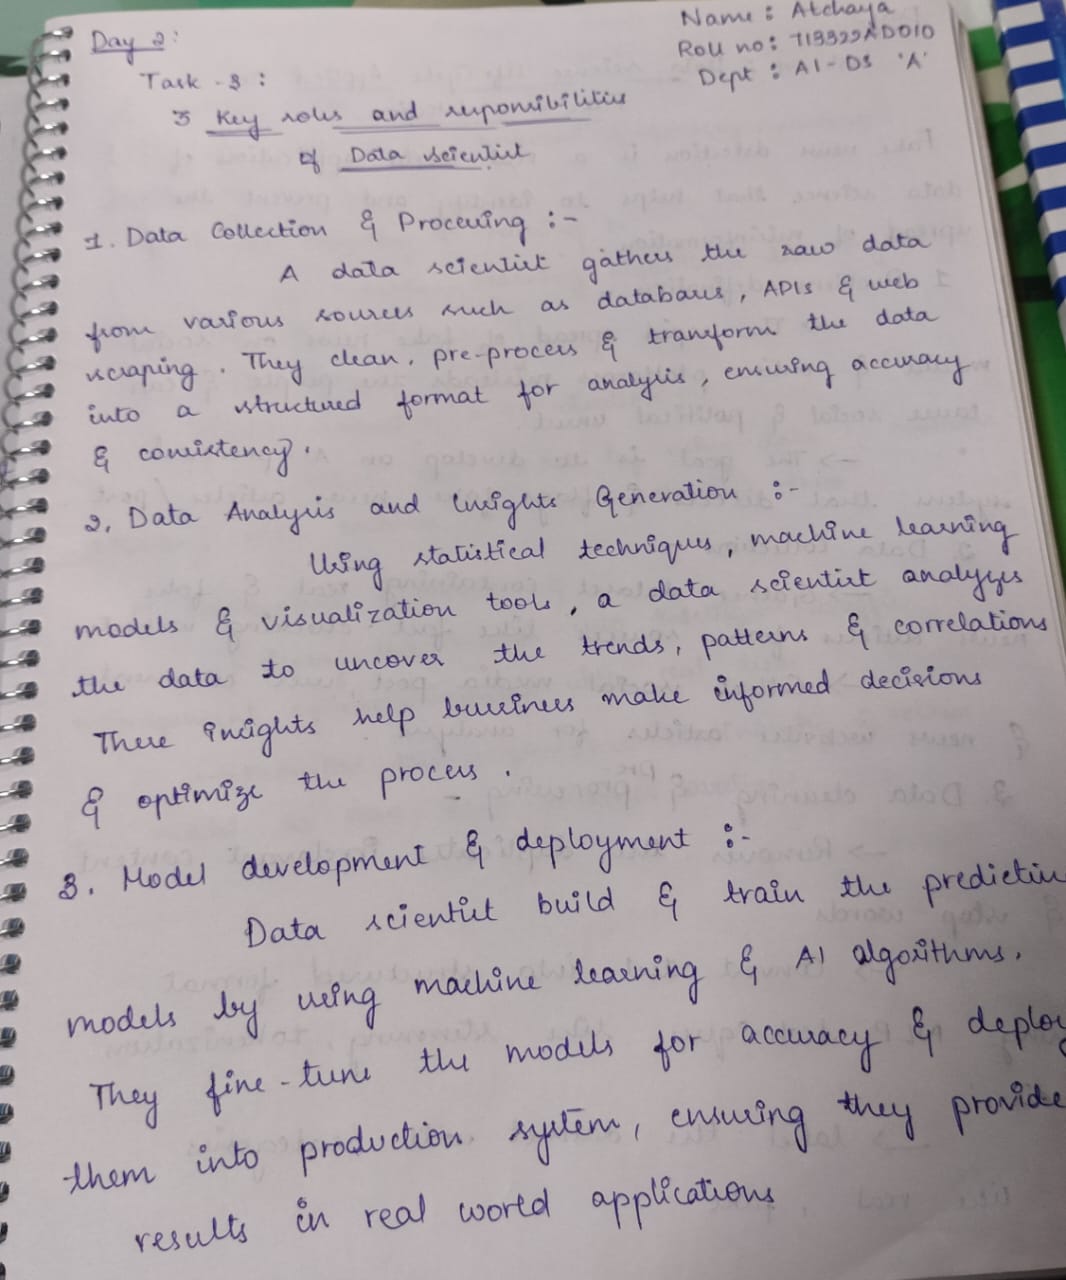 Name : Atchaya
Roll no : 713522AD010
Dept : AI-DS 'A'
Day 2 :
Task - 3 :
3 Key roles and responsibilities
of Data scientist
1. Data Collection & Processing :-
A data scientist gathers the raw data
from various sources such as databases, APIs & web
scraping. They clean, pre-process & transform the data
into a structured format for analysis, ensuring accuracy
& consistency.
2. Data Analysis and Insights Generation :-
Using statistical techniques, machine learning
models & visualization tools, a data scientist analyzes
the data to uncover the trends, patterns & correlations
These insights help business make informed decisions
& optimize the process.
3. Model development & deployment :-
Data scientist build & train the predictive
models by using machine learning & AI algorithms.
They fine-tune the models for accuracy & deploy
them into production system, ensuring they provide
results in real world applications